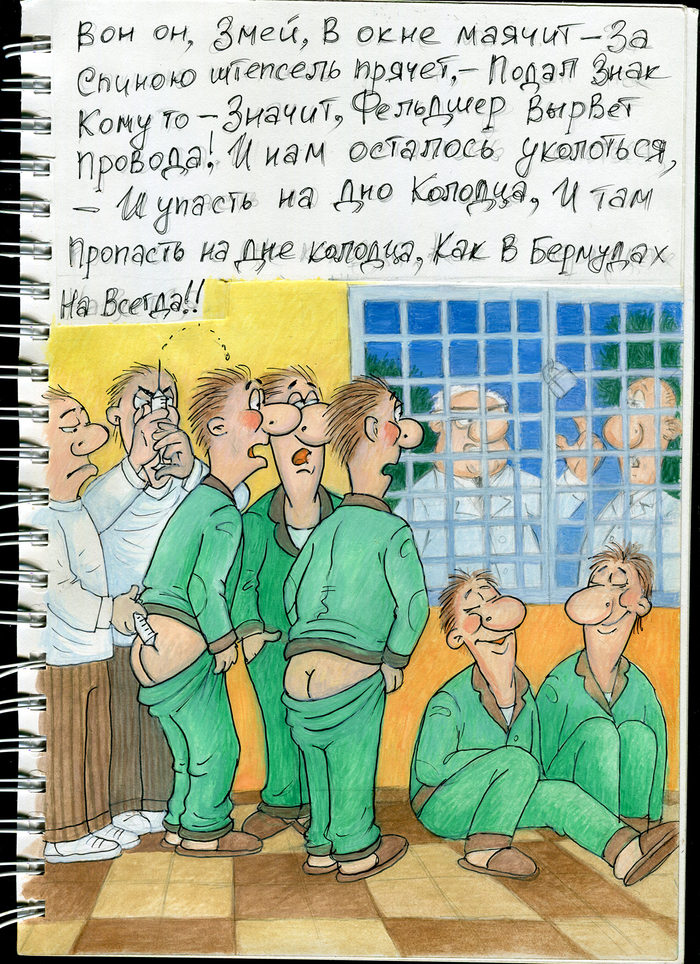 Вон он, Змей, В окне маячит – За
Спиною штепсель прячет, – Подал Знак
Кому то – Значит, Фельдшер Вырвет
Провода! И нам осталось уколоться,
– И упасть на Дно Колодца, И там
Пропасть на дне колодца, Как В Бермудах
На Всегда!!